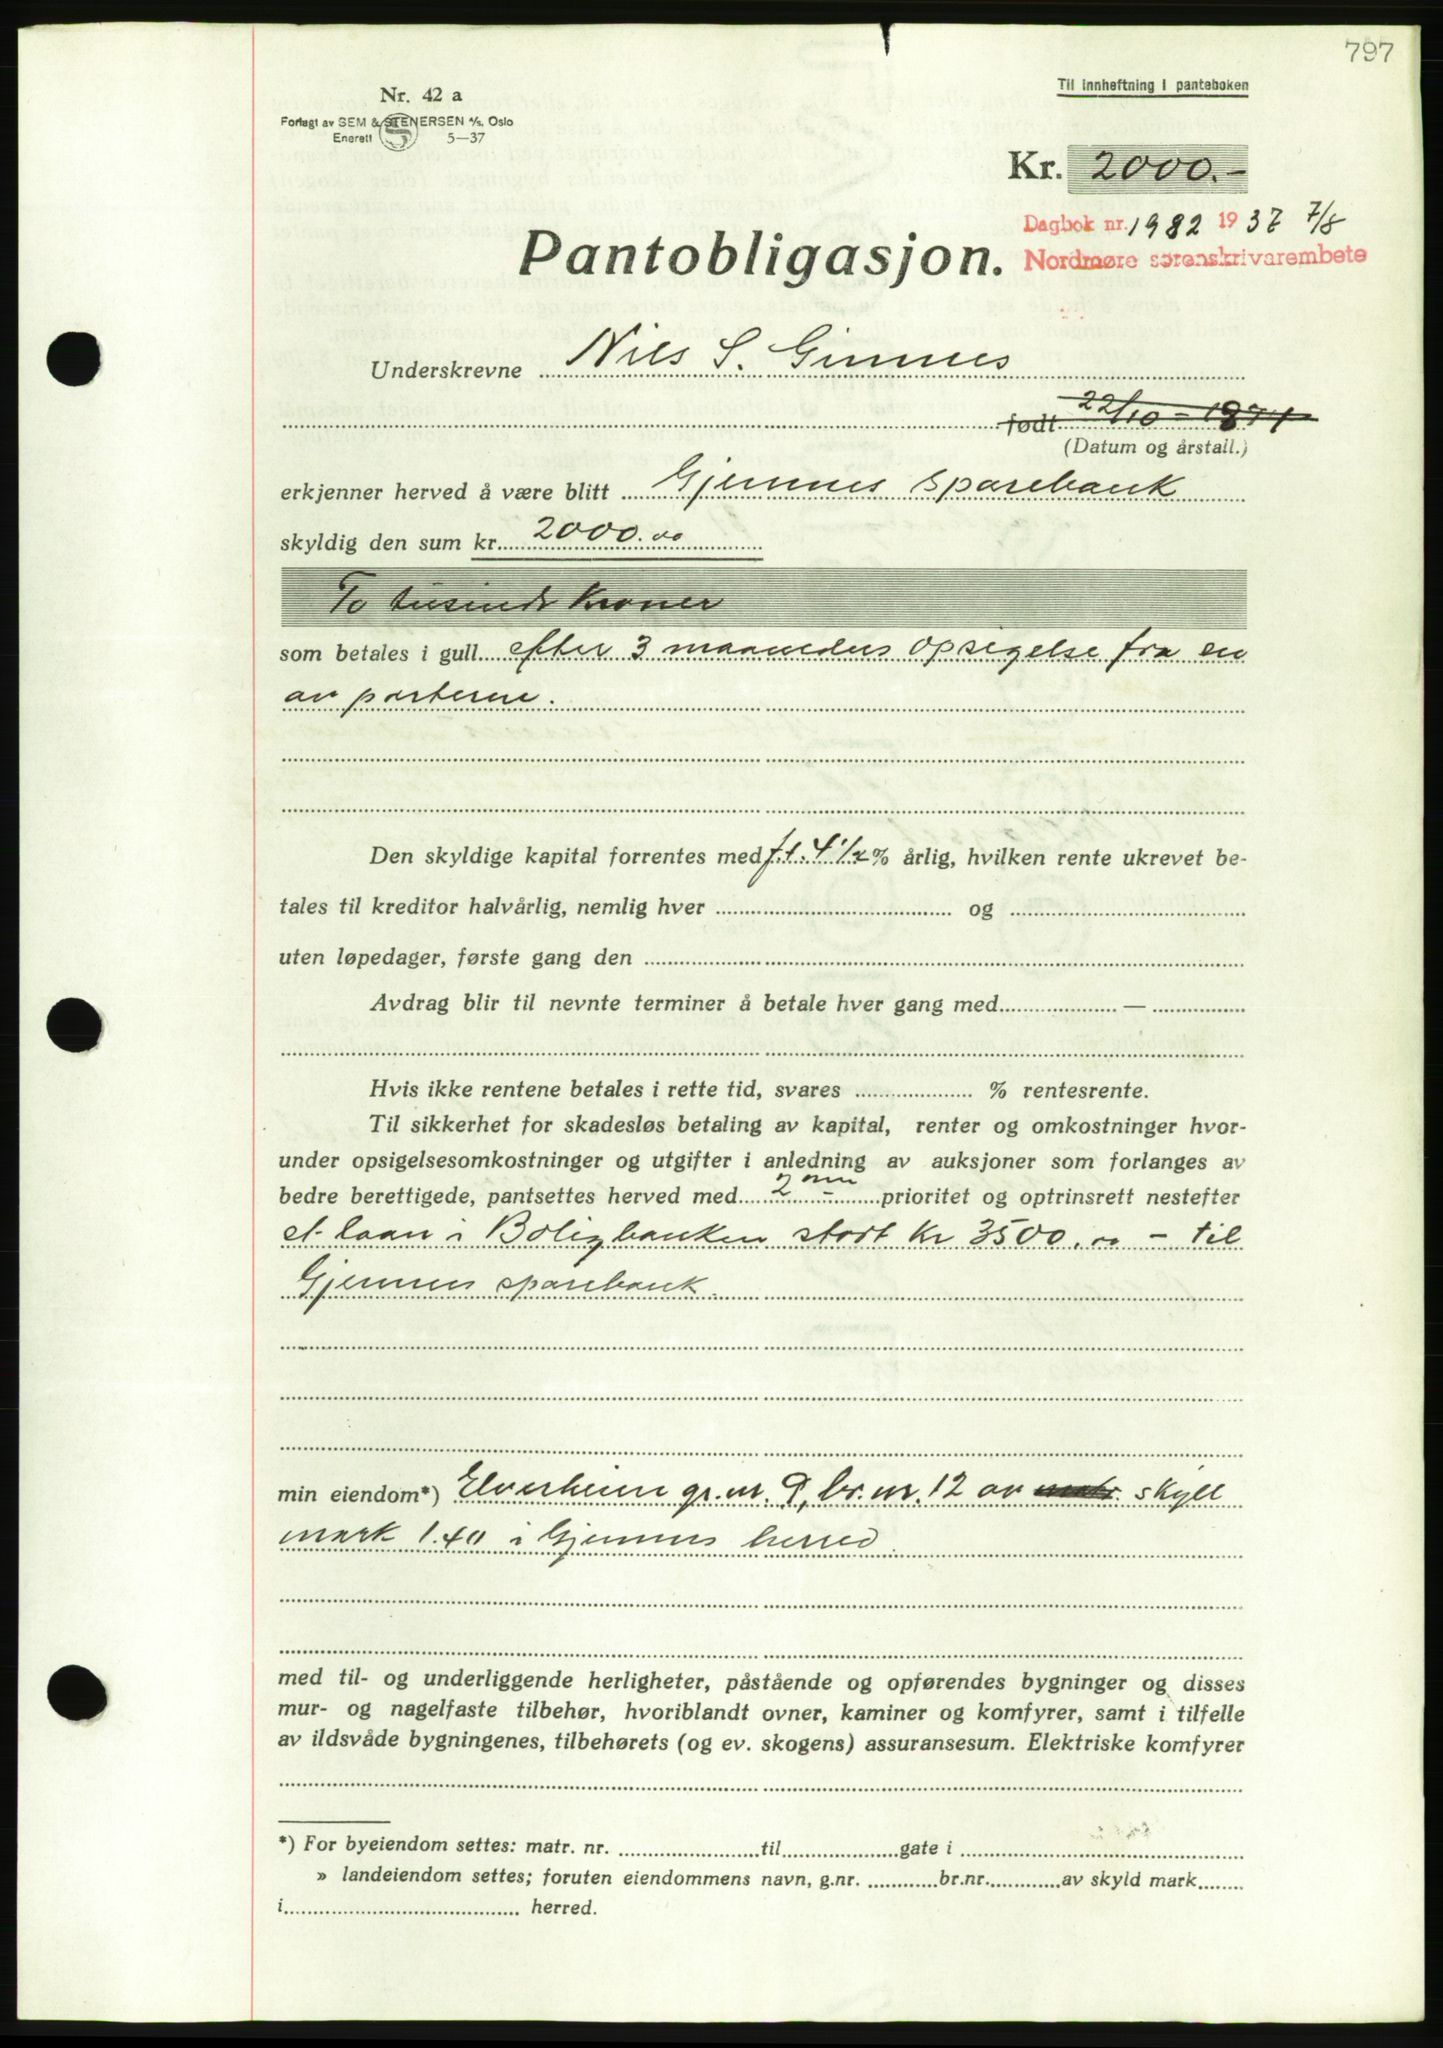 797
Til innheftning i panteboken
Nr. 42 a
Forlagt av SEM & STENERSEN A/S. Oslo
Enerett 5—37
Kr. 2000.-
Dagbok nr. 1982 1937 7/8
Nordmøre sorenskrivarembete
Pantobligasjon.
Underskrevne Nils S. Gimnes
født 22/10 - 1871
(Datum og årstall.)
erkjenner herved å være blitt Gjemnes sparebank
skyldig den sum kr. 2000.00
To tusinde Kroner
som betales i gull efter 3 maaneders opsigelse fra en
av parterne.
Den skyldige kapital forrentes med f.t. 4 1/2 % årlig, hvilken rente ukrevet be-
tales til kreditor halvårlig, nemlig hver og
uten løpedager, første gang den
Avdrag blir til nevnte terminer å betale hver gang med —
Hvis ikke rentene betales i rette tid, svares % rentesrente.
Til sikkerhet for skadesløs betaling av kapital, renter og omkostninger hvor-
under opsigelsesomkostninger og utgifter i anledning av auksjoner som forlanges av
bedre berettigede, pantsettes herved med 2 - prioritet og optrinsrett nestefter
et laan i Boligbanken stort Kr 3500.00 - til
Gjemnes sparebank.
min eiendom*) Elverheim gr.nr. 9, br.nr. 12 av matr. skyld
mark 1.40 i Gjemnes herred.
med til- og underliggende herligheter, påstående og opførendes bygninger og disses
mur- og nagelfaste tilbehør, hvoriblandt ovner, kaminer og komfyrer, samt i tilfelle
av ildsvåde bygningenes, tilbehørets (og ev. skogens) assuransesum. Elektriske komfyrer
*) For byeiendom settes: matr. nr. til gate i
» landeiendom settes; foruten eiendommens navn, g.nr. br.nr. av skyld mark
i herred.